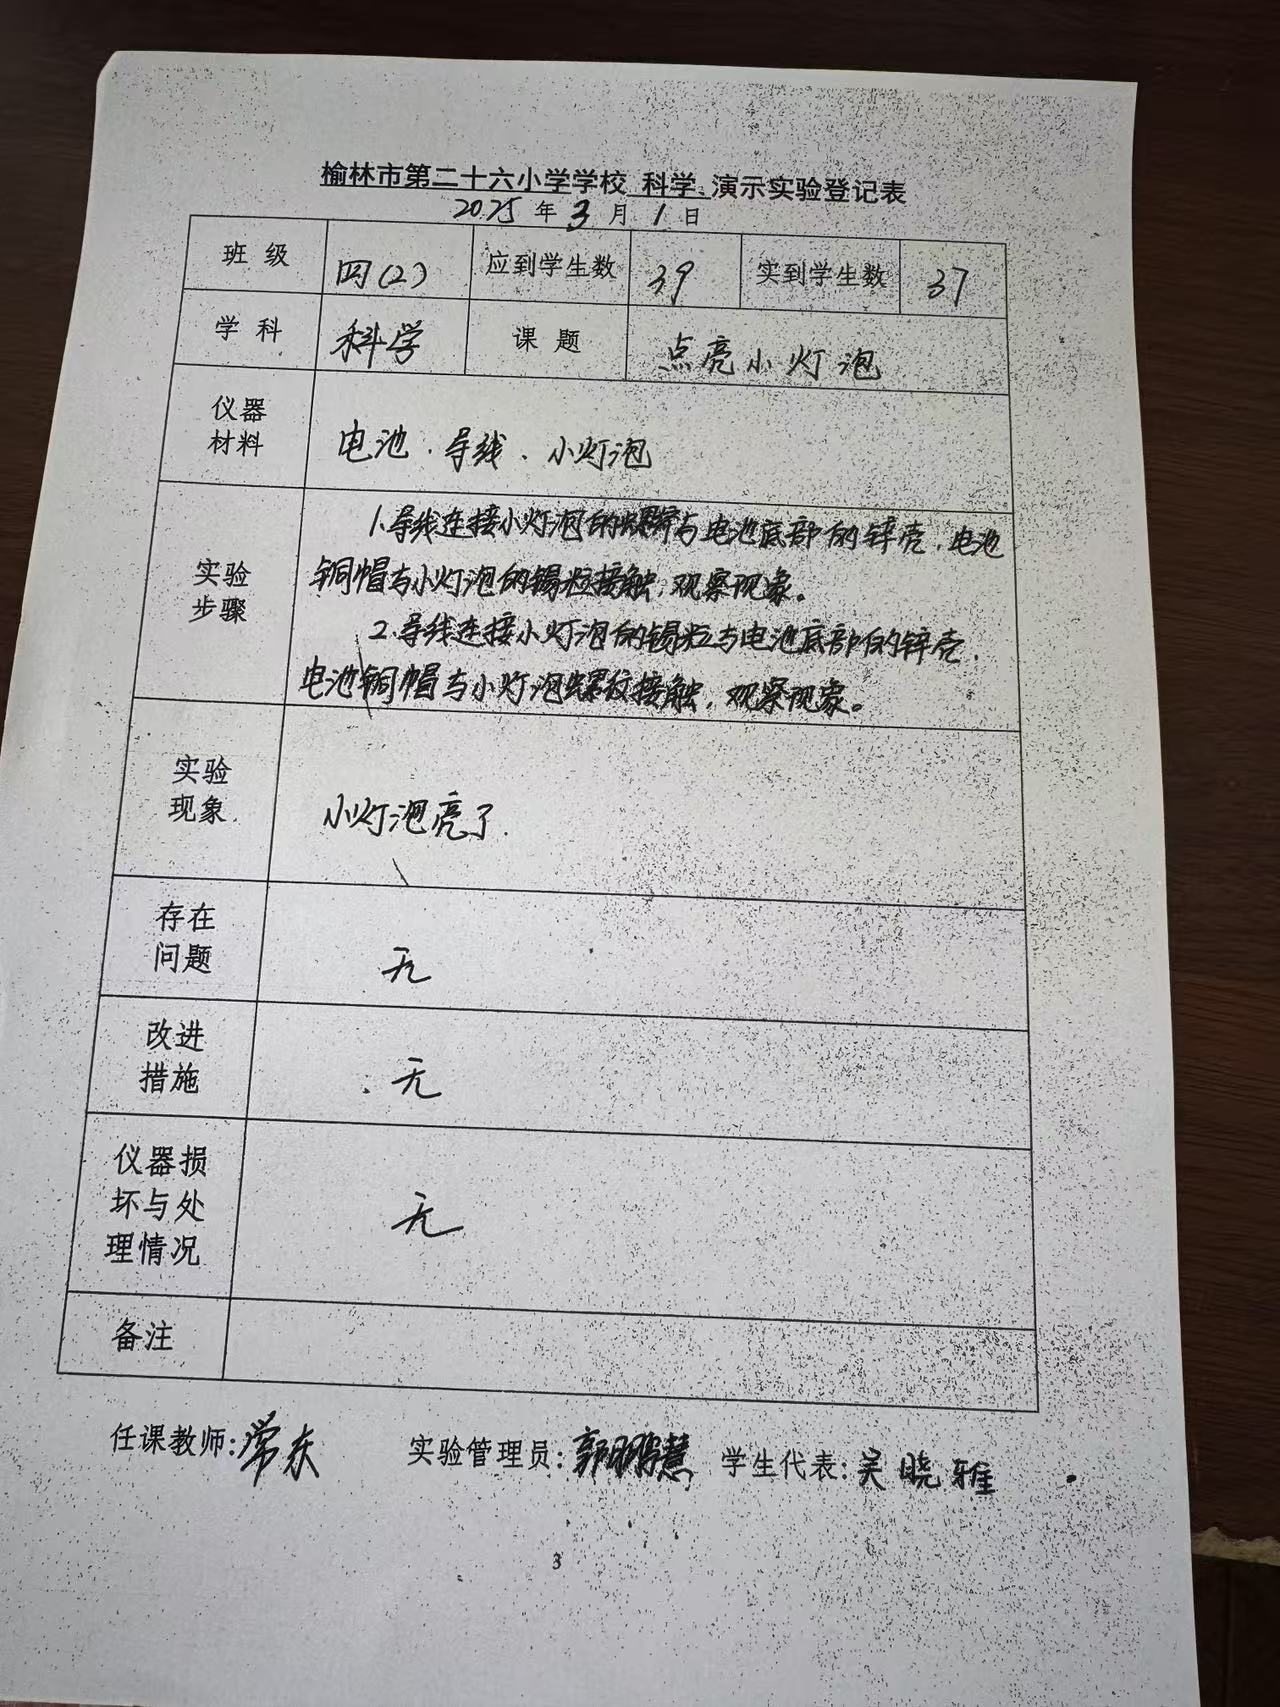 榆林市第二十六小学学校 科学 演示实验登记表
2025 年 3 月 1 日
班 级 四(2) 应到学生数 39 实到学生数 37
学 科 科学 课 题 点亮小灯泡
仪器
材料
电池、导线、小灯泡
实验
步骤
1.导线连接小灯泡的螺纹与电池底部的锌壳,电池
铜帽与小灯泡的锡粒接触,观察现象。
2.导线连接小灯泡的锡粒与电池底部的锌壳,
电池铜帽与小灯泡螺纹接触,观察现象。
实验
现象
小灯泡亮了.
存在
问题
无
改进
措施
无
仪器损
坏与处
理情况
无
备注
任课教师:常东 实验管理员:郭鹏慧 学生代表:吴晓雅
3